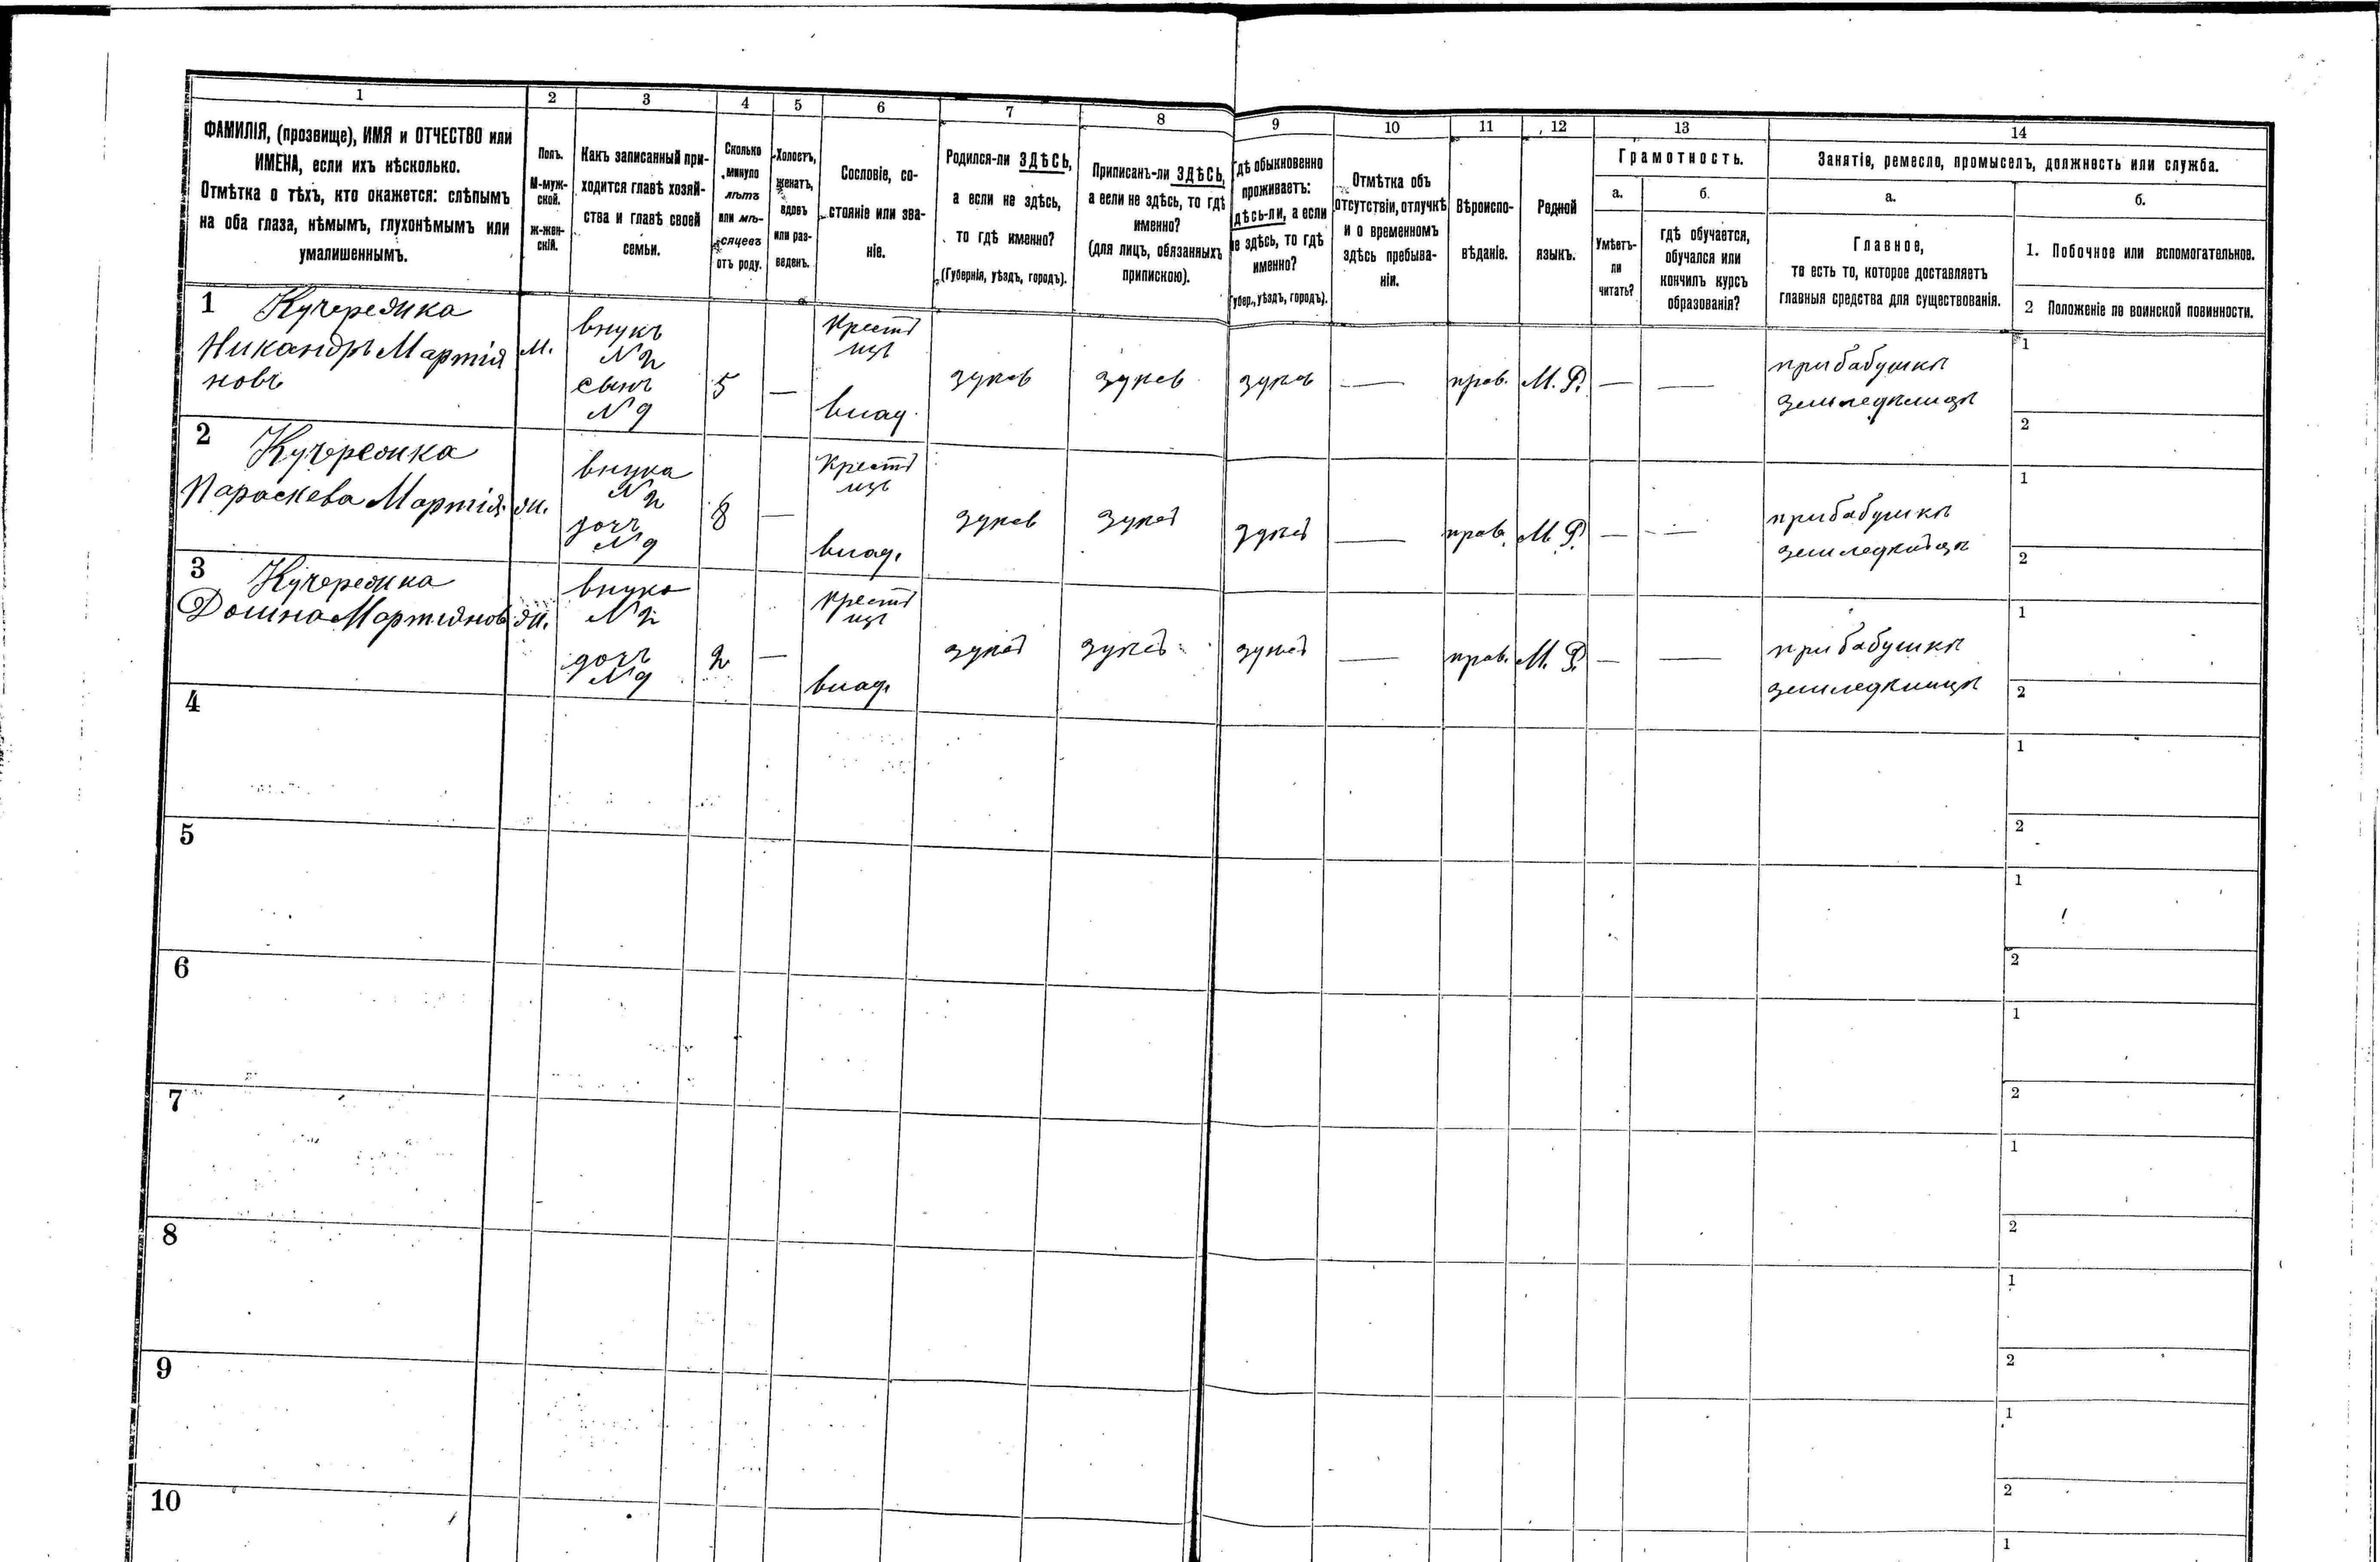 1 2 3 4 5 6 7 8 9 10 11 12 13 14
ФАМИЛІЯ, (прозвище), ИМЯ и ОТЧЕСТВО или
ИМЕНА, если ихъ нѣсколько.
Отмѣтка о тѣхъ, кто окажется: слѣпымъ
на оба глаза, нѣмымъ, глухонѣмымъ или
умалишеннымъ.
Полъ.
М-муж-
ской.
Ж-жен-
скій.
Какъ записанный при-
ходится главѣ хозяй-
ства и главѣ своей
семьи.
Сколько
минуло
лѣтъ
или мѣ-
сяцевъ
отъ роду.
Холостъ,
женатъ,
вдовъ
или раз-
веденъ.
Сословіе, со-
стояніе или зва-
ніе.
Родился-ли ЗДѢСЬ,
а если не здѣсь,
то гдѣ именно?
(Губернія, уѣздъ, городъ).
Приписанъ-ли ЗДѢСЬ,
а если не здѣсь, то гдѣ
именно?
(для лицъ, обязанныхъ
припискою).
Гдѣ обыкновенно
проживаетъ:
здѣсь-ли, а если
не здѣсь, то гдѣ
именно?
(Губер., уѣздъ, городъ).
Отмѣтка объ
отсутствіи, отлучкѣ
и о временномъ
здѣсь пребыва-
ніи.
Вѣроиспо-
вѣданіе.
Родной
языкъ.
Грамотность.
а.
Умѣетъ-
ли
читать?
б.
гдѣ обучается,
обучался или
кончилъ курсъ
образованія?
Занятіе, ремесло, промыселъ, должность или служба.
а.
Главное,
то есть то, которое доставляетъ
главныя средства для существованія.
б.
1. Побочное или вспомогательное.
2 Положеніе по воинской повинности.
1 Кучередика
Никандръ Мартія
новъ
М.
внукъ
№ 2
сынъ
№ 9
5
—
Крестя
нцъ
влад.
—
прав.
М. Р.
—
—
при бабушкѣ
земледѣлица
1
2
2 Кучередика
Параскева Мартія.
ж.
внука
№ 2
дочь
№ 9
8
—
влад.
—
прав.
М. Р.
—
—
при бабушкѣ
1
2
3 Кучередика
Домна Мартіянов
ж.
внука
№ 2
дочь
№ 9
2
—
влад.
—
прав.
М. Р.
—
—
при бабушкѣ
1
2
4
1
2
5
1
2
6
1
2
7
1
2
8
1
2
9
1
2
10
1